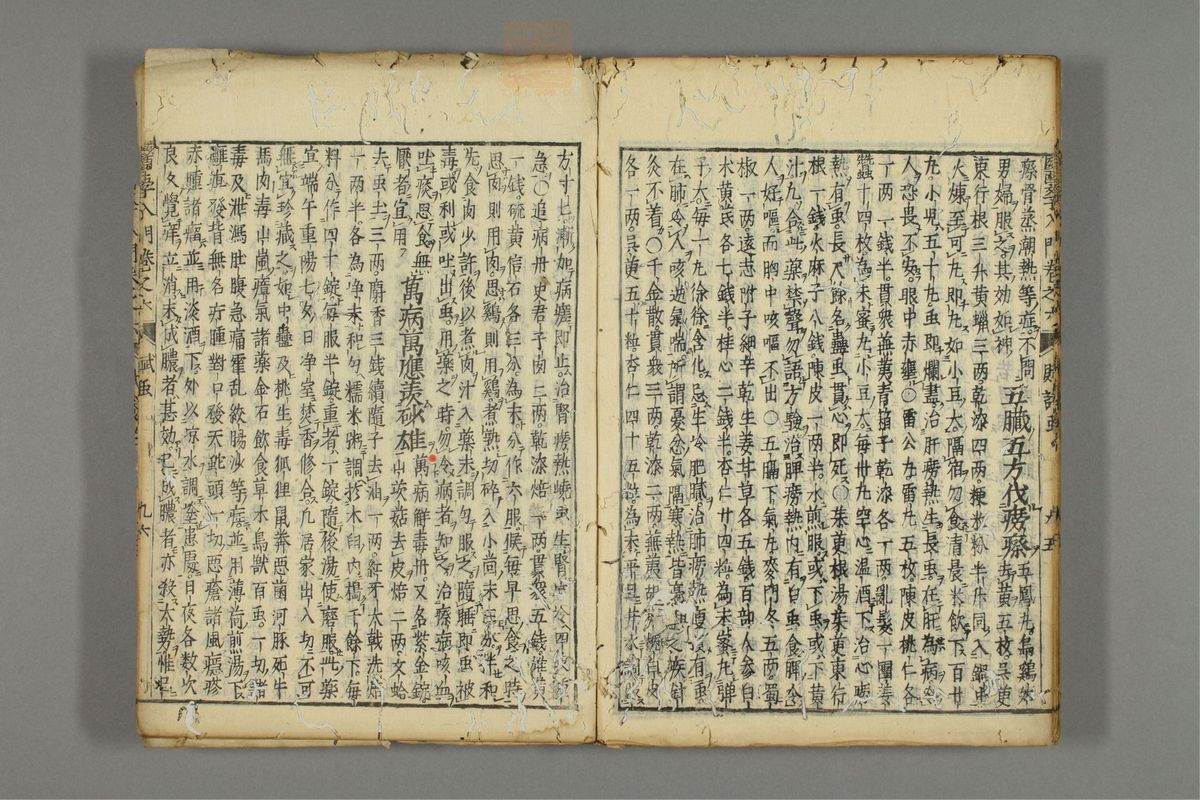 瘵骨蒸潮熱等症不問 五臟五方伐癆瘵 五鳳丸烏雞卵五枚去黄五枚吳茰
東行根三升黄蠟三兩乾漆四兩粳米粉半升同入銅
火煉至可丸即丸如小豆大隔宿勿食清晨米飲下百廿
丸小児五十丸虫即爛盡治肝癆熱生長虫在肝為病
人恐畏不安眼中赤壅○雷公丸雷丸五枚陳皮桃仁各
一兩一錢半貫衆蕪荑青葙子乾漆各一兩乱髪一團
十四枚為末蜜丸小豆大每卅九丸空心温酒下治心癆
熱有虫長尺餘名蠱虫貫心即死○茱茰根湯茱茰東行
根一錢火麻子八錢陳皮一兩半水煎服或下虫或下黄
汁凡合此藥禁聲勿語方驗治脾癆熱内有白虫食脾令
人好嘔而胸中咳嘔不出○五膈下氣丸麥門冬五兩蜀
椒一兩遠志附子細辛乾生姜甘草各五錢百部人參白
术黄芪各七錢半桂心二錢半杏仁廿四粒為末蜜丸彈
子大每一丸徐徐含化忌生冷肥膩治肺癆熱瘦人有虫
在肺令人咳逆氣喘所謂憂恚氣隔寒熱皆膏肓之疾針
灸不着○千金散貫衆三兩乾漆二兩蕪荑胡粉槐白皮
各一兩吳茰五十粒杏仁四十五粒為末平旦井水調服
方寸七漸加病瘥即止治腎癆熱蟯虫生腎虚
急○追病丹史君子肉二兩乾漆焙一兩貫衆五錢雄黄
一錢硫黄信石各三分為末分作六服候每早思食之時
思肉則用肉思鷄則用鷄煮熟切碎入小尚末三分半和
先食肉少許後以煮肉汁入藥末調匀服之隨睡即虫被
毒或利或吐出虫用藥之時勿令病者知之治癆瘵咳血
吐痰思食無
厭者宜用 萬病萬應羨砂雄 萬病觧毒丹又名紫金錠山茨菇去皮焙二兩文蛤
去虫土三兩麝香三錢續隨子去油一兩紅牙大戟洗焙
一兩半各為净末和匀糯米粥調於木臼内搗千餘下每
料分作四十錠每服半錠重者一錠隨後湯使磨服此藥
宜端午重陽七夕日净室焚香修合凡居家出入切不可
無宜珍藏之如中蠱及桃生毒狐狸鼠莽悪菌河豚死牛
馬肉毒山嵐瘴氣諸藥金石飲食草木鳥獸百虫一切諸
毒及泄瀉肚腹急痛霍乱絞腸沙等症並用薄荷煎湯下
癰疽發背無名疔腫對口發天蛇頭一切悪瘡諸風癮疹
赤腫諸瘤並用淡酒下外以凉水調塗患處日夜各数次
良久覺痒立消未成膿者甚効已成膿者亦殺大勢惟
醫學入門卷之六
賦
九六
九五